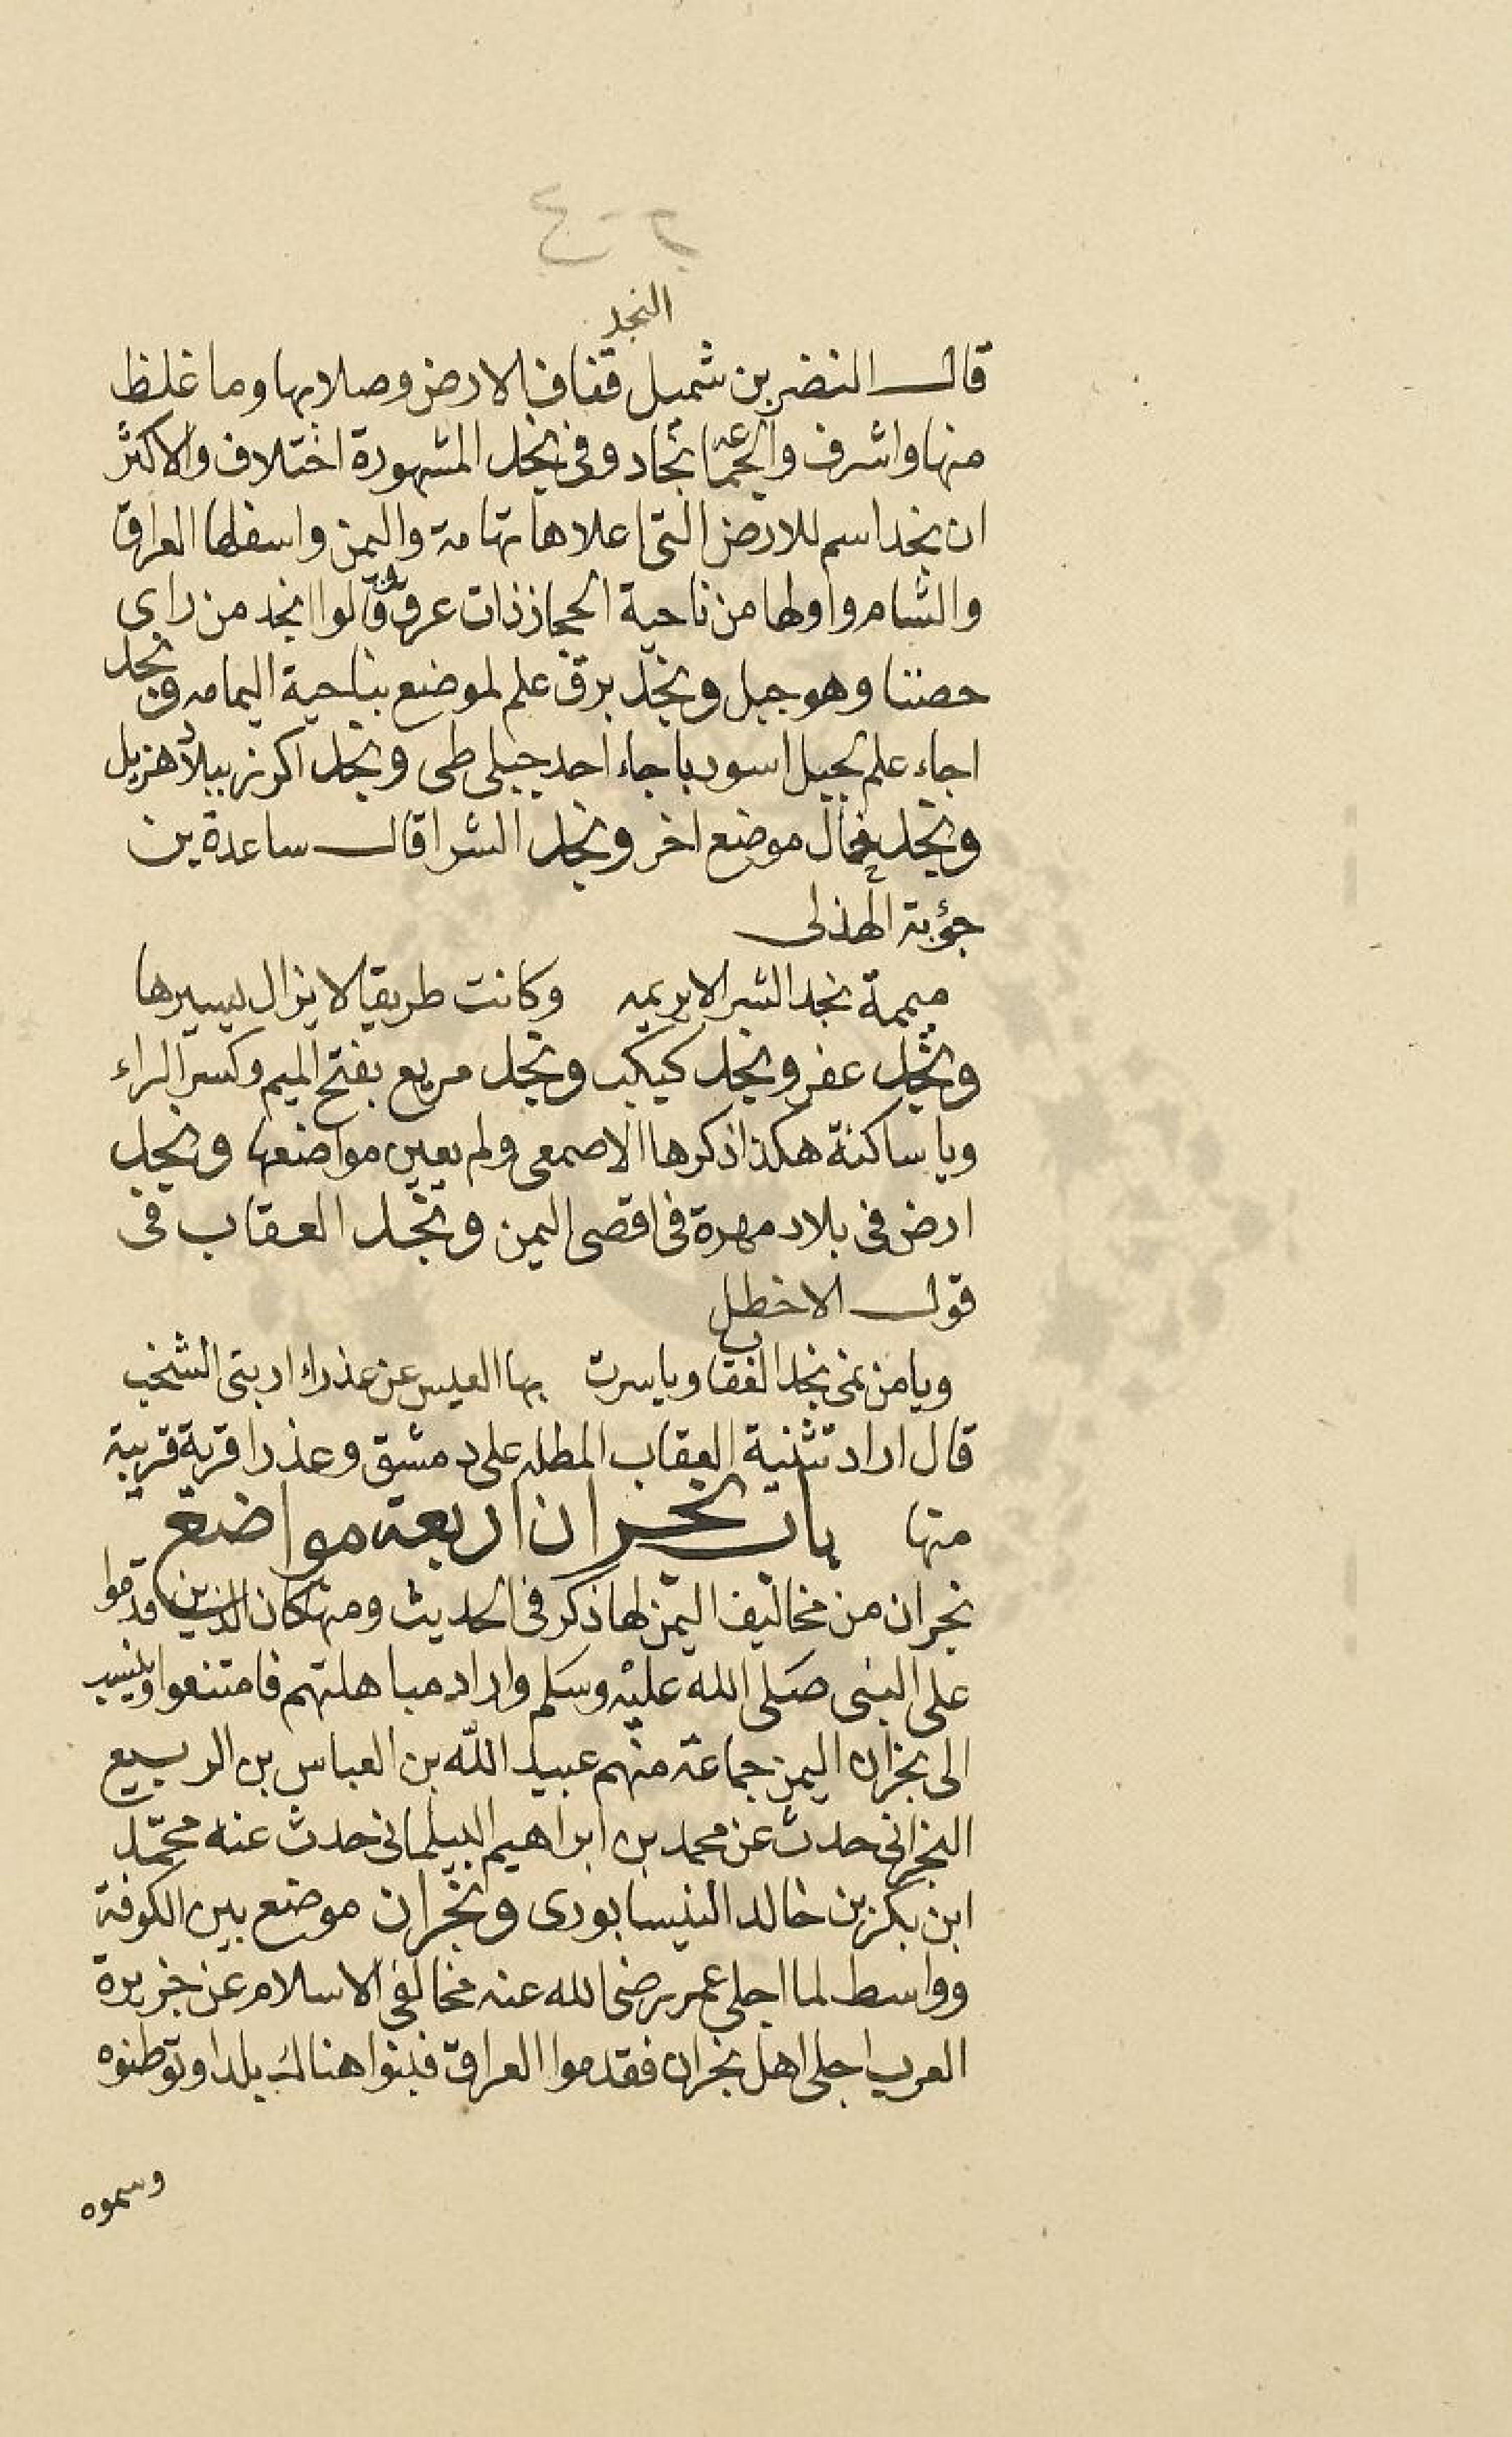 ٤٠٢
النجد
قال النضر بن شميل قفاف الارض وصلابها وما غلظ
منها واشرف والجماعة نجاد وفى نجد المشهورة اختلاف والاكثر
ان نجد اسم للارض التى اعلاها تهامة واليمن واسفلها العراق
والشام واولها من ناحية الحجاز ذات عرق وقالوا انجد من راى
حضنا وهو جبل ونجد برق علم لموضع بناحية اليمامه ونجد
اجاء علم لجبل اسود باجاء احد جبلى طى ونجد اكرز ببلاد هزيل
ونجد خال موضع اخر ونجد الشرا قال ساعدة بن
جؤبة الهذلى
ميممة نجد الشرا لا يريمه وكانت طريقا لا يزال يسيرها
ونجد عفر ونجد كبكب ونجد مريع بفتح الميم وكسر الراء
ويا ساكنة هكذا ذكرها الاصمعى ولم يعين مواضعها ونجد
ارض فى بلاد مهرة فى اقصى اليمن ونجد العقاب فى
قول الاخطل
ويامن نجد العقاب وياسرت بها العيس عن عذراء اربنى الشخب
قال اراد تثنية العقاب المطله على دمشق وعذرا قرية قريبة
منها باب نجران اربعة مواضع
نجران من مخاليف اليمن لها ذكر فى الحديث ومنها كان الذين قدموا
على النبى صلى الله عليه وسلم واراد مباهلتهم فامتنعوا وينسب
الى نجران اليمن جماعة منهم عبيد الله بن العباس بن الربيع
النجرانى حدث عن محمد بن ابراهيم البيلمانى حدث عنه محمد
ابن بكر بن خالد النيسابورى ونجران موضع بين الكوفة
وواسط لما اجلى عمر رضى الله عنه مخالفى الاسلام عن جزيرة
العرب اجلى اهل نجران فقدموا العراق فبنوا هناك بلدا وتوطنوه
وسموه